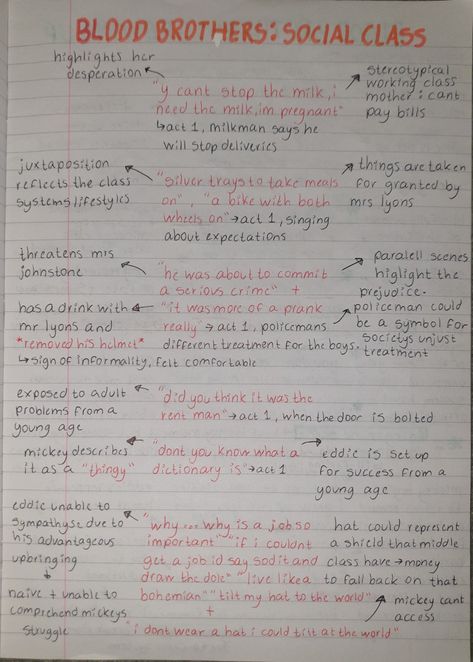 BLOOD BROTHERS: SOCIAL CLASS
highlights her
desperation
"y cant stop the milk, i
need the milk, im pregnant"
↳ act 1, milkman says he
will stop deliveries
stereotypical
working class
mother : cant
pay bills
juxtaposition
reflects the class
systems lifestyles
"silver trays to take meals
on", "a bike with both
wheels on" → act 1, singing
about expectations
things are taken
for granted by
mrs lyons
threatens mrs
johnstone
"he was about to commit
a serious crime" +
paralell scenes
higlight the
prejudice.
has a drink with
mr lyons and
*removed his helmet*
↳ sign of informality, felt comfortable
"it was more of a prank
really" → act 1, policemans
different treatment for the boys.
policeman could
be a symbol for
societys unjust
treatment
exposed to adult
problems from a
young age
"did you think it was the
rent man" → act 1, when the door is bolted
mickey describes
it as a "thingy"
"dont you know what a
dictionary is" → act 1
eddie is set up
for success from a
young age
eddie unable to
sympathyse due to
his advantageous
upbringing
↓
naive + unable to
comprehend mickeys
struggle
"why ... why is a job so
important" "if i couldnt
get a job id say sod it and
draw the dole" "live like a
bohemian" "tilt my hat to the world"
+
"i dont wear a hat i could tilt at the world"
hat could represent
a shield that middle
class have → money
to fall back on that
mickey cant
access